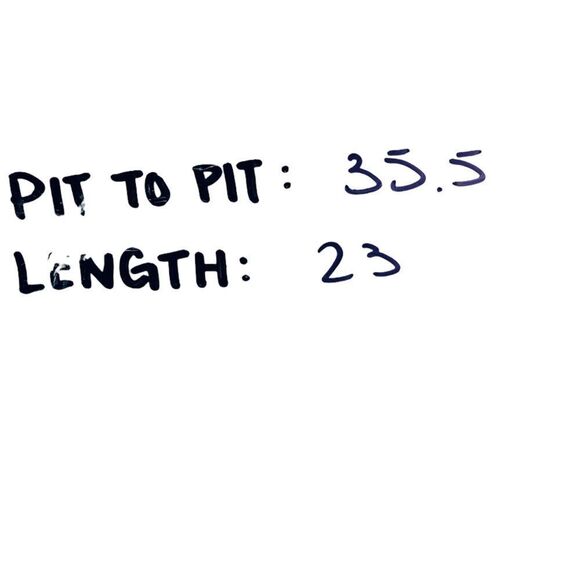 PIT TO PIT: 35.5
LENGTH: 23